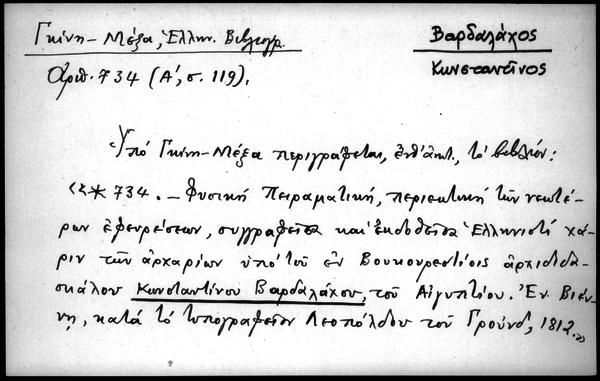 Γκίνη-Μέξα, Ἑλλην. Βιβλιογρ.
Ἀριθ. 734 (Α', σ. 119).
Βαρδαλάχος
Κωνσταντῖνος
Ὑπό Γκίνη-Μέξα περιγράφεται, ἐπὶ λέξ., τὸ βιβλίον:
«* 734. – Φυσική Πειραματική, περιεκτική τῶν νεωτέ-
ρων ἐφευρέσεων, συγγραφεῖσα καὶ ἐκδοθεῖσα Ἑλληνιστί χά-
ριν τῶν ἀρχαρίων ὑπό τοῦ ἐν Βουκουρεστίοις ἀρχιδιδα-
σκάλου Κωνσταντίνου Βαρδαλάχου, τοῦ Αἰγυπτίου. Ἐν Βιέν-
νῃ, κατά τό τυπογραφεῖον Λεοπόλδου τοῦ Γρούνδ, 1812.»